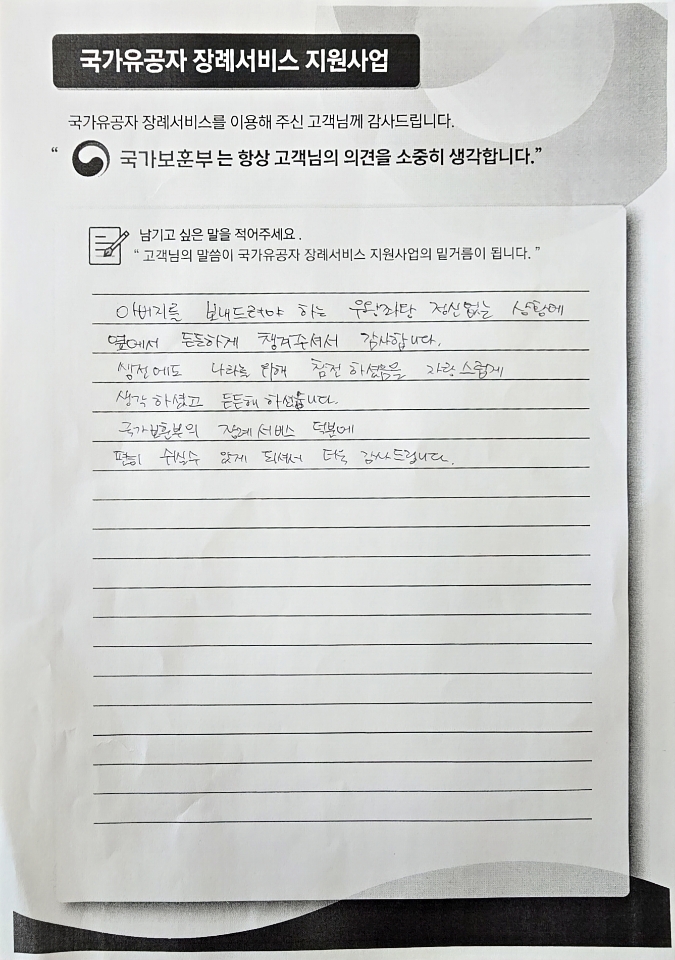 국가유공자 장례서비스 지원사업
국가유공자 장례서비스를 이용해 주신 고객님께 감사드립니다.
“ 국가보훈부 는 항상 고객님의 의견을 소중히 생각합니다.”
남기고 싶은 말을 적어주세요.
“ 고객님의 말씀이 국가유공자 장례서비스 지원사업의 밑거름이 됩니다. ”
아버지를 보내드려야 하는 우왕좌왕 정신없는 상황에
옆에서 든든하게 챙겨주셔서 감사합니다.
생전에도 나라를 위해 참전 하셨음을 자랑스럽게
생각 하셨고 든든해 하셨습니다.
국가보훈부의 장례서비스 덕분에
편히 쉬실수 있게 되셔서 더욱 감사드립니다.